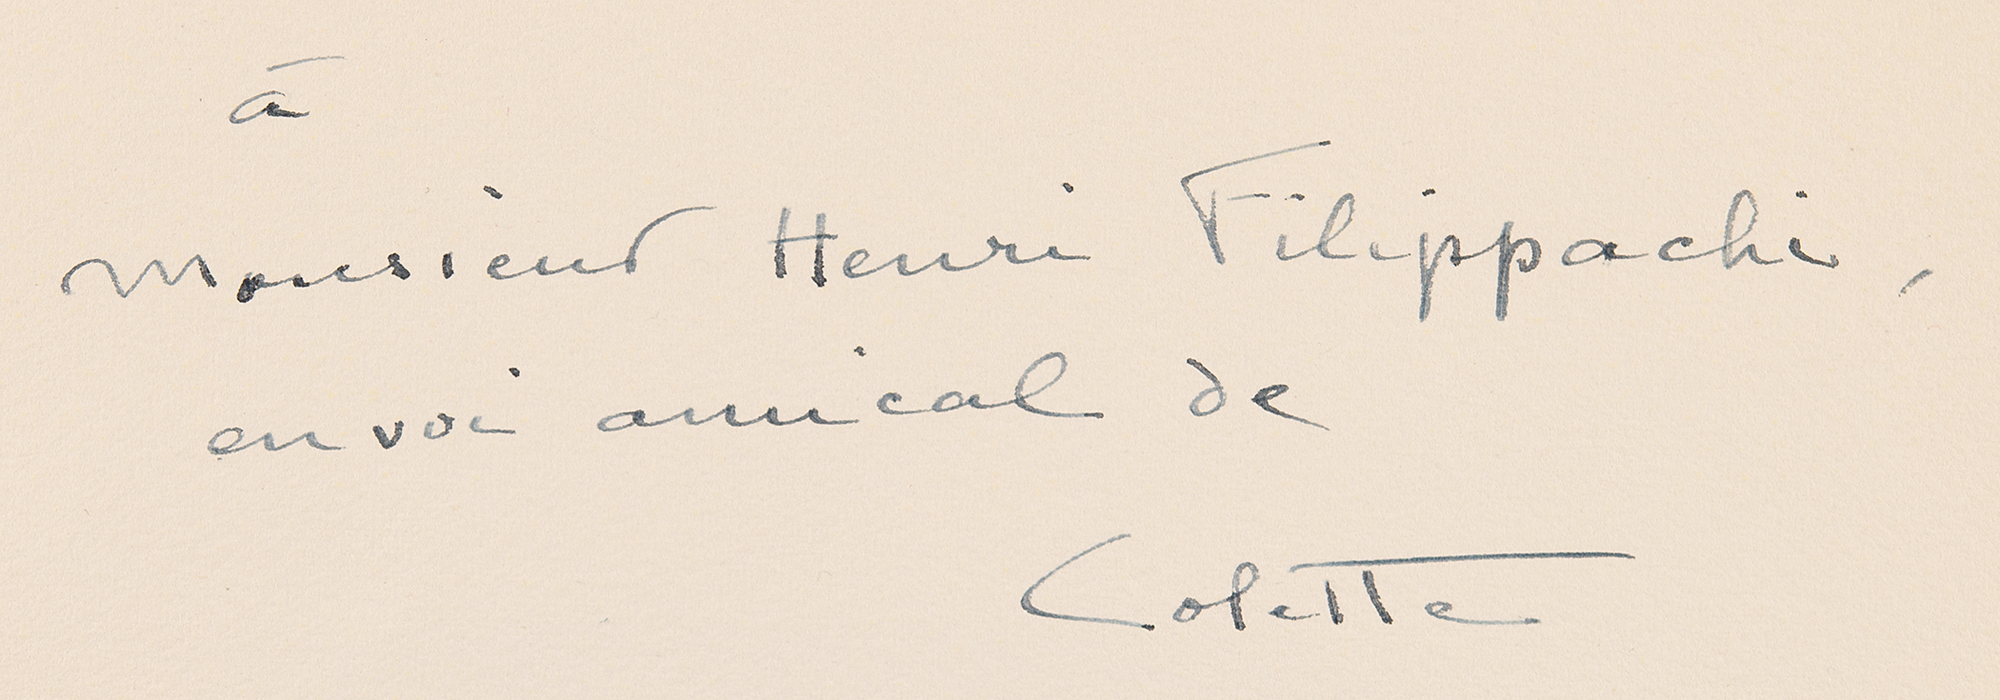 à
Monsieur Henri Filippachi,
envoi amical de
Colette